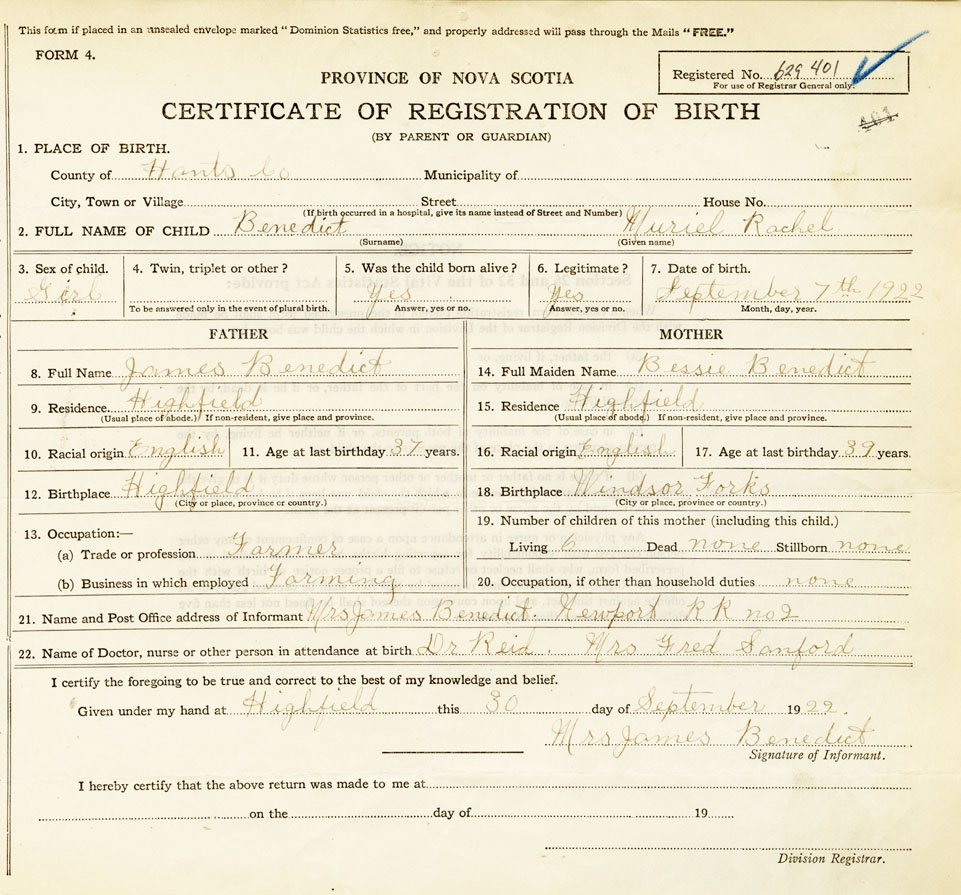 This form if placed in an unsealed envelope marked "Dominion Statistics free," and properly addressed will pass through the Mails "FREE."
FORM 4.
Registered No. 629 401
For use of Registrar General only.
PROVINCE OF NOVA SCOTIA
CERTIFICATE OF REGISTRATION OF BIRTH
(BY PARENT OR GUARDIAN)
401
1. PLACE OF BIRTH.
County of Hants Co Municipality of
City, Town or Village Street House No.
(If birth occurred in a hospital, give its name instead of Street and Number)
2. FULL NAME OF CHILD Benedict Muriel Rachel
(Surname) (Given name)
3. Sex of child. 4. Twin, triplet or other? 5. Was the child born alive? 6. Legitimate? 7. Date of birth.
Girl Yes Yes September 7th 1922
To be answered only in the event of plural birth. Answer, yes or no. Answer, yes or no. Month, day, year.
FATHER MOTHER
8. Full Name James Benedict 14. Full Maiden Name Bessie Benedict
9. Residence. Highfield 15. Residence Highfield
(Usual place of abode.) If non-resident, give place and province. (Usual place of abode.) If non-resident, give place and province.
10. Racial origin English 11. Age at last birthday 37 years. 16. Racial origin English 17. Age at last birthday 39 years.
12. Birthplace Highfield 18. Birthplace Windsor Forks
(City or place, province or country.) (City or place, province or country.)
13. Occupation:— 19. Number of children of this mother (including this child.)
(a) Trade or profession Farmer Living 6 Dead none Stillborn none
(b) Business in which employed Farming 20. Occupation, if other than household duties none
21. Name and Post Office address of Informant Mrs James Benedict. Newport R R no 2
22. Name of Doctor, nurse or other person in attendance at birth Dr Reid. Mrs Fred Sanford
I certify the foregoing to be true and correct to the best of my knowledge and belief.
Given under my hand at Highfield this 30 day of September 1922.
Mrs James Benedict
Signature of Informant.
I hereby certify that the above return was made to me at
on the day of 19
Division Registrar.